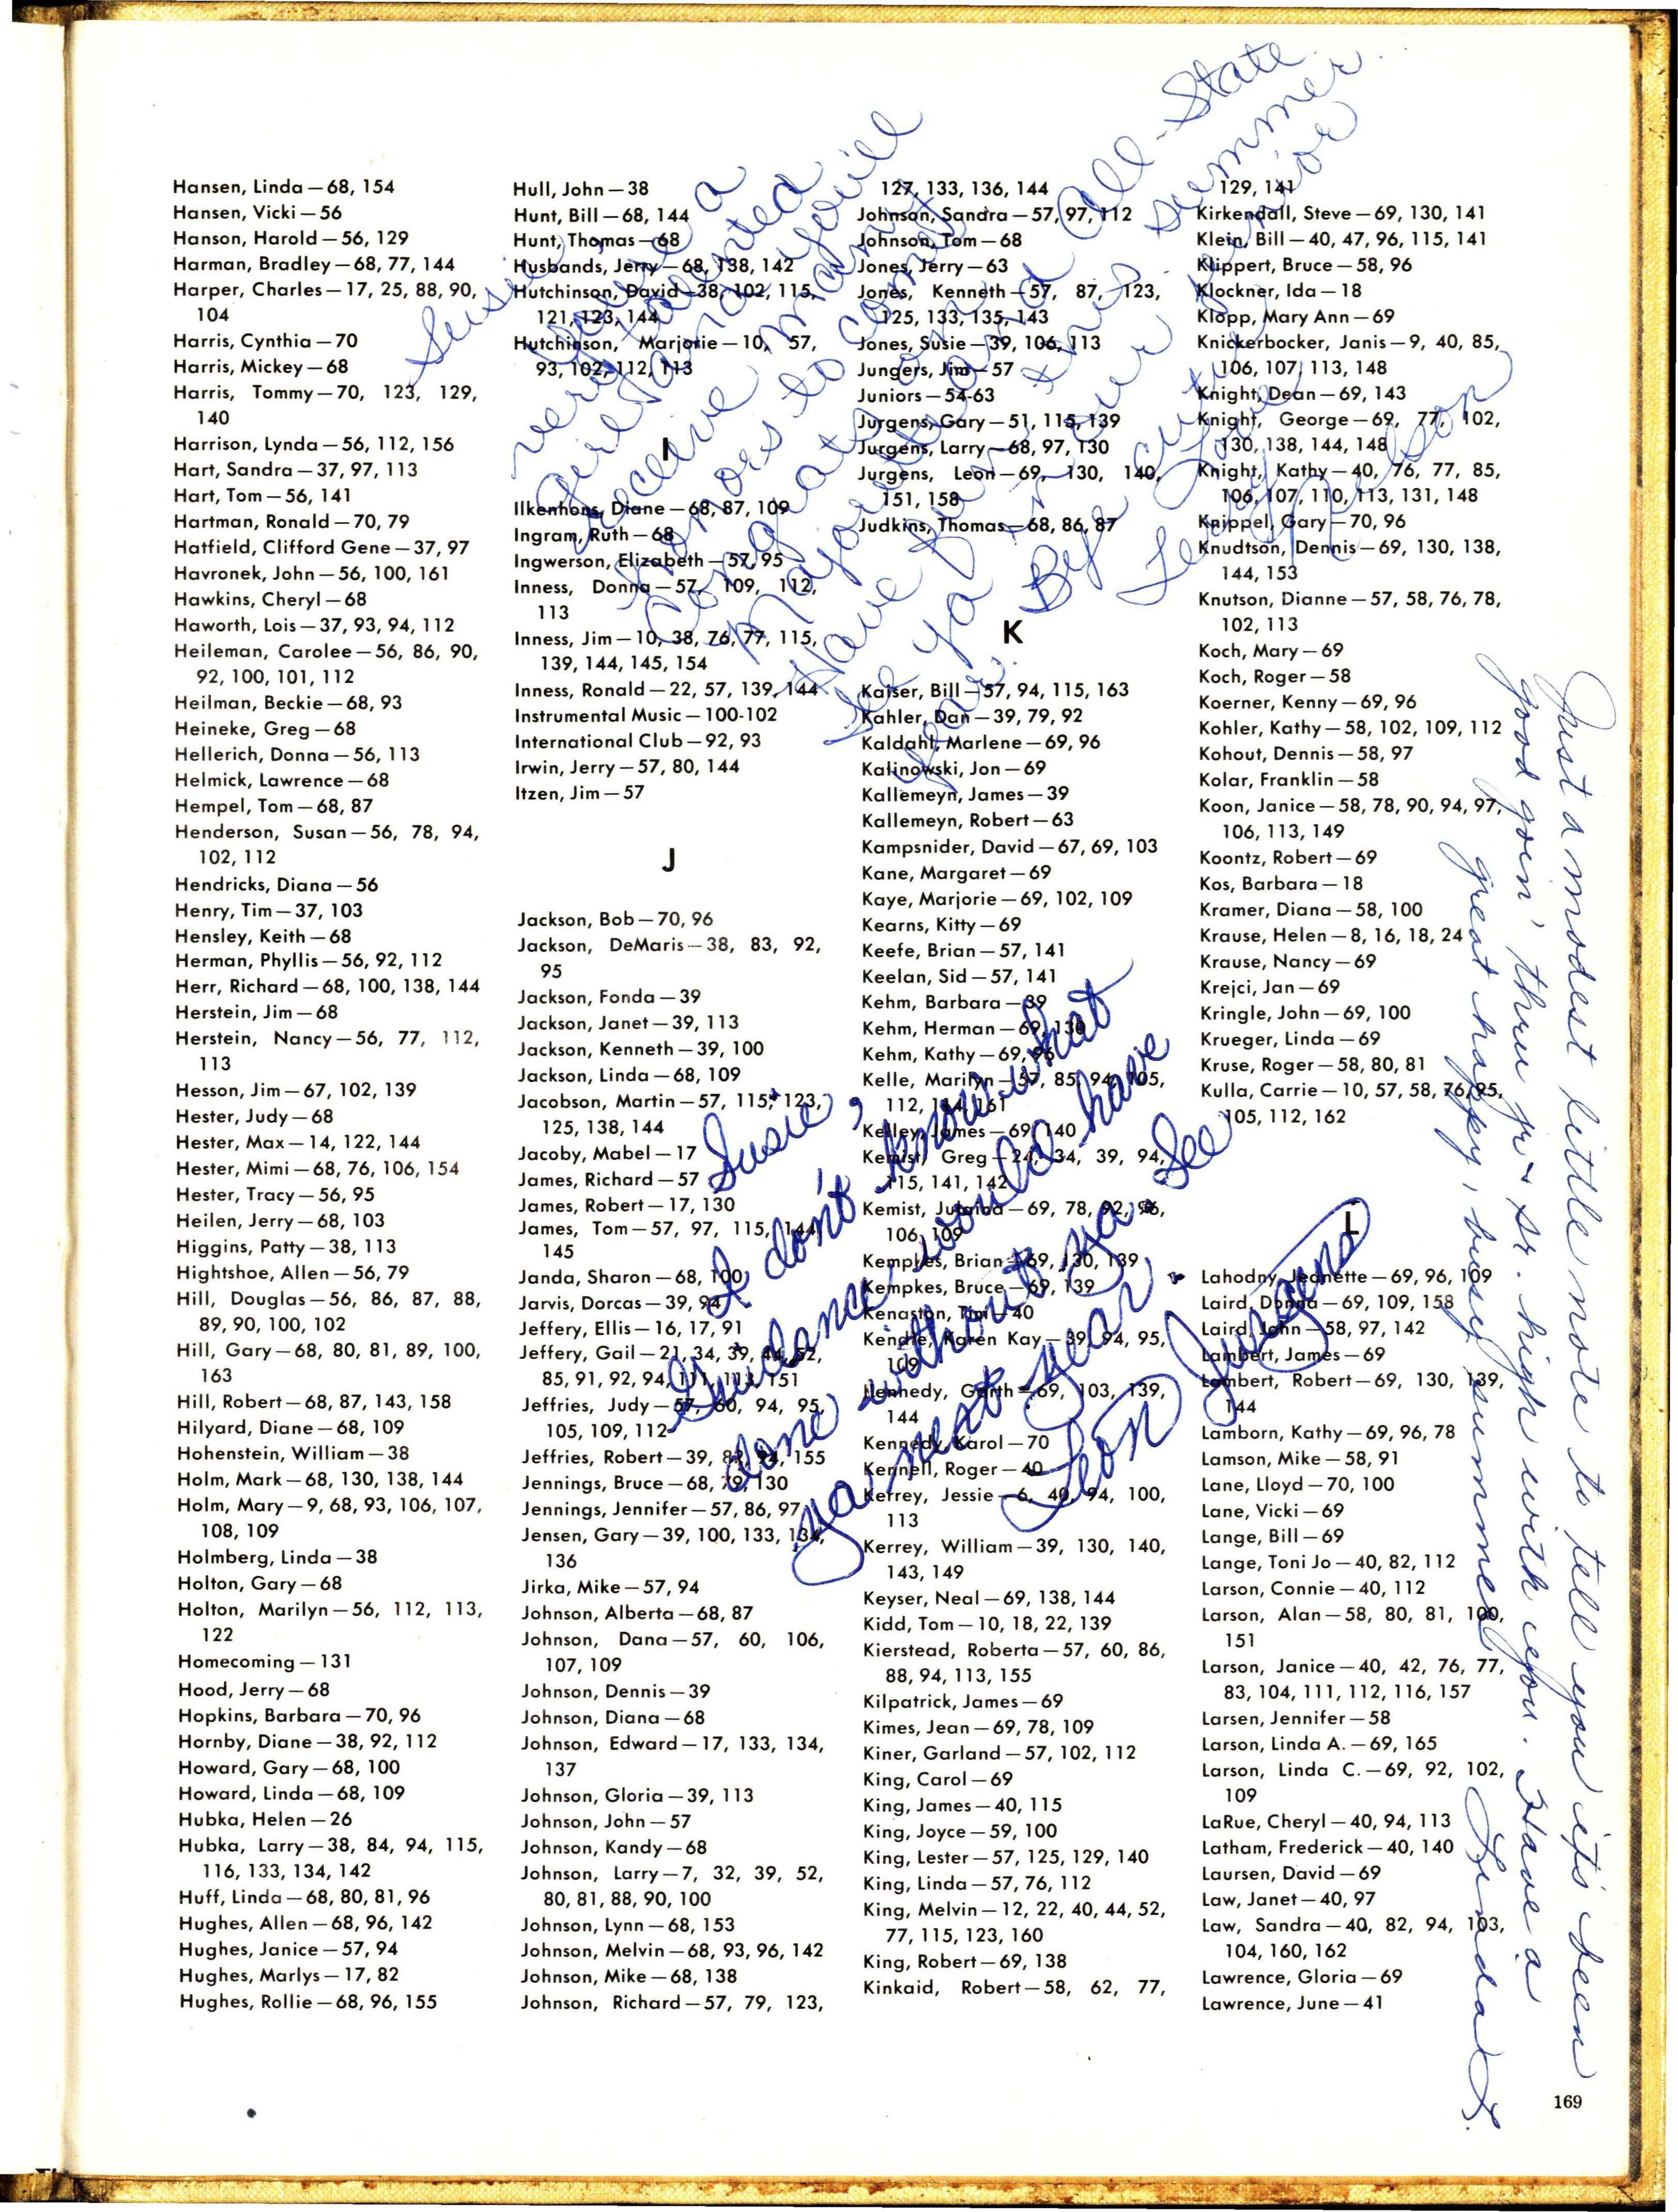 Hansen, Linda — 68, 154
Hansen, Vicki — 56
Hanson, Harold — 56, 129
Harman, Bradley — 68, 77, 144
Harper, Charles — 17, 25, 88, 90,
104
Harris, Cynthia — 70
Harris, Mickey — 68
Harris, Tommy — 70, 123, 129,
140
Harrison, Lynda — 56, 112, 156
Hart, Sandra — 37, 97, 113
Hart, Tom — 56, 141
Hartman, Ronald — 70, 79
Hatfield, Clifford Gene — 37, 97
Havronek, John — 56, 100, 161
Hawkins, Cheryl — 68
Haworth, Lois — 37, 93, 94, 112
Heileman, Carolee — 56, 86, 90,
92, 100, 101, 112
Heilman, Beckie — 68, 93
Heineke, Greg — 68
Hellerich, Donna — 56, 113
Helmick, Lawrence — 68
Hempel, Tom — 68, 87
Henderson, Susan — 56, 78, 94,
102, 112
Hendricks, Diana — 56
Henry, Tim — 37, 103
Hensley, Keith — 68
Herman, Phyllis — 56, 92, 112
Herr, Richard — 68, 100, 138, 144
Herstein, Jim — 68
Herstein, Nancy — 56, 77, 112,
113
Hesson, Jim — 67, 102, 139
Hester, Judy — 68
Hester, Max — 14, 122, 144
Hester, Mimi — 68, 76, 106, 154
Hester, Tracy — 56, 95
Heilen, Jerry — 68, 103
Higgins, Patty — 38, 113
Hightshoe, Allen — 56, 79
Hill, Douglas — 56, 86, 87, 88,
89, 90, 100, 102
Hill, Gary — 68, 80, 81, 89, 100,
163
Hill, Robert — 68, 87, 143, 158
Hilyard, Diane — 68, 109
Hohenstein, William — 38
Holm, Mark — 68, 130, 138, 144
Holm, Mary — 9, 68, 93, 106, 107,
108, 109
Holmberg, Linda — 38
Holton, Gary — 68
Holton, Marilyn — 56, 112, 113,
122
Homecoming — 131
Hood, Jerry — 68
Hopkins, Barbara — 70, 96
Hornby, Diane — 38, 92, 112
Howard, Gary — 68, 100
Howard, Linda — 68, 109
Hubka, Helen — 26
Hubka, Larry — 38, 84, 94, 115,
116, 133, 134, 142
Huff, Linda — 68, 80, 81, 96
Hughes, Allen — 68, 96, 142
Hughes, Janice — 57, 94
Hughes, Marlys — 17, 82
Hughes, Rollie — 68, 96, 155
Hull, John — 38
Hunt, Bill — 68, 144
Hunt, Thomas — 68
Husbands, Jerry — 68, 138, 142
Hutchinson, David — 38, 102, 115,
121, 123, 144
Hutchinson, Marjorie — 10, 57,
93, 102, 112, 113
I
Ilkenhons, Diane — 68, 87, 109
Ingram, Ruth — 68
Ingwerson, Elizabeth — 57, 95
Inness, Donna — 57, 109, 112,
113
Inness, Jim — 10, 38, 76, 77, 115,
139, 144, 145, 154
Inness, Ronald — 22, 57, 139, 144
Instrumental Music — 100-102
International Club — 92, 93
Irwin, Jerry — 57, 80, 144
Itzen, Jim — 57
J
Jackson, Bob — 70, 96
Jackson, DeMaris — 38, 83, 92,
95
Jackson, Fonda — 39
Jackson, Janet — 39, 113
Jackson, Kenneth — 39, 100
Jackson, Linda — 68, 109
Jacobson, Martin — 57, 115, 123,
125, 138, 144
Jacoby, Mabel — 17
James, Richard — 57
James, Robert — 17, 130
James, Tom — 57, 97, 115, 144,
145
Janda, Sharon — 68, 100
Jarvis, Dorcas — 39, 94
Jeffery, Ellis — 16, 17, 91
Jeffery, Gail — 21, 34, 39, 44, 52,
85, 91, 92, 94, 111, 113, 151
Jeffries, Judy — 57, 60, 94, 95,
105, 109, 112
Jeffries, Robert — 39, 94, 155
Jennings, Bruce — 68, 79, 130
Jennings, Jennifer — 57, 86, 97
Jensen, Gary — 39, 100, 133, 134,
136
Jirka, Mike — 57, 94
Johnson, Alberta — 68, 87
Johnson, Dana — 57, 60, 106,
107, 109
Johnson, Dennis — 39
Johnson, Diana — 68
Johnson, Edward — 17, 133, 134,
137
Johnson, Gloria — 39, 113
Johnson, John — 57
Johnson, Kandy — 68
Johnson, Larry — 7, 32, 39, 52,
80, 81, 88, 90, 100
Johnson, Lynn — 68, 153
Johnson, Melvin — 68, 93, 96, 142
Johnson, Mike — 68, 138
Johnson, Richard — 57, 79, 123,
127, 133, 136, 144
Johnson, Sandra — 57, 97, 112
Johnson, Tom — 68
Jones, Jerry — 63
Jones, Kenneth — 57, 87, 123,
125, 133, 135, 143
Jones, Susie — 39, 106, 113
Jungers, Jim — 57
Juniors — 54-63
Jurgens, Gary — 51, 115, 139
Jurgens, Larry — 68, 97, 130
Jurgens, Leon — 69, 130, 140,
151, 158
Judkins, Thomas — 68, 86, 87
K
Kaiser, Bill — 57, 94, 115, 163
Kahler, Dan — 39, 79, 92
Kaldahl, Marlene — 69, 96
Kalinowski, Jon — 69
Kallemeyn, James — 39
Kallemeyn, Robert — 63
Kampsnider, David — 67, 69, 103
Kane, Margaret — 69
Kaye, Marjorie — 69, 102, 109
Kearns, Kitty — 69
Keefe, Brian — 57, 141
Keelan, Sid — 57, 141
Kehm, Barbara — 39
Kehm, Herman — 69, 130
Kehm, Kathy — 69, 96
Kelle, Marilyn — 57, 85, 94, 105,
112, 114, 161
Kelley, James — 69, 140
Kemist, Greg — 24, 34, 39, 94,
115, 141, 142
Kemist, — 69, 78, 92, 96,
106, 109
Kempkes, Brian — 69, 130, 139
Kempkes, Bruce — 69, 139
Kenaston, Tim — 40
Kendle, Karen Kay — 39, 94, 95,
109
Kennedy, Garth — 69, 103, 139,
144
Kennedy, Karol — 70
Kennell, Roger — 40
Kerrey, Jessie — 6, 40, 94, 100,
113
Kerrey, William — 39, 130, 140,
143, 149
Keyser, Neal — 69, 138, 144
Kidd, Tom — 10, 18, 22, 139
Kierstead, Roberta — 57, 60, 86,
88, 94, 113, 155
Kilpatrick, James — 69
Kimes, Jean — 69, 78, 109
Kiner, Garland — 57, 102, 112
King, Carol — 69
King, James — 40, 115
King, Joyce — 59, 100
King, Lester — 57, 125, 129, 140
King, Linda — 57, 76, 112
King, Melvin — 12, 22, 40, 44, 52,
77, 115, 123, 160
King, Robert — 69, 138
Kinkaid, Robert — 58, 62, 77,
129, 141
Kirkendall, Steve — 69, 130, 141
Klein, Bill — 40, 47, 96, 115, 141
Klippert, Bruce — 58, 96
Klockner, Ida — 18
Klopp, Mary Ann — 69
Knickerbocker, Janis — 9, 40, 85,
106, 107, 113, 148
Knight, Dean — 69, 143
Knight, George — 69, 77, 102,
130, 138, 144, 148
Knight, Kathy — 40, 76, 77, 85,
106, 107, 110, 113, 131, 148
Knippel, Gary — 70, 96
Knudtson, Dennis — 69, 130, 138,
144, 153
Knutson, Dianne — 57, 58, 76, 78,
102, 113
Koch, Mary — 69
Koch, Roger — 58
Koerner, Kenny — 69, 96
Kohler, Kathy — 58, 102, 109, 112
Kohout, Dennis — 58, 97
Kolar, Franklin — 58
Koon, Janice — 58, 78, 90, 94, 97,
106, 113, 149
Koontz, Robert — 69
Kos, Barbara — 18
Kramer, Diana — 58, 100
Krause, Helen — 8, 16, 18, 24
Krause, Nancy — 69
Krejci, Jan — 69
Kringle, John — 69, 100
Krueger, Linda — 69
Kruse, Roger — 58, 80, 81
Kulla, Carrie — 10, 57, 58, 76, 95,
105, 112, 162
L
Lahodny, Jeanette — 69, 96, 109
Laird, Donna — 69, 109, 158
Laird, John — 58, 97, 142
Lambert, James — 69
Lambert, Robert — 69, 130, 139,
144
Lamborn, Kathy — 69, 96, 78
Lamson, Mike — 58, 91
Lane, Lloyd — 70, 100
Lane, Vicki — 69
Lange, Bill — 69
Lange, Toni Jo — 40, 82, 112
Larson, Connie — 40, 112
Larson, Alan — 58, 80, 81, 100,
151
Larson, Janice — 40, 42, 76, 77,
83, 104, 111, 112, 116, 157
Larsen, Jennifer — 58
Larson, Linda A. — 69, 165
Larson, Linda C. — 69, 92, 102,
109
LaRue, Cheryl — 40, 94, 113
Latham, Frederick — 40, 140
Laursen, David — 69
Law, Janet — 40, 97
Law, Sandra — 40, 82, 94, 103,
104, 160, 162
Lawrence, Gloria — 69
Lawrence, June — 41
169
Susie,
You're a
very talented
girl and you'll
receive many
honors to come.
Congrats on
Majorette and All-State
Have fun this summer.
See ya in our junior
year.
Bye Cutie
Love
Susie,
I don't know what
Guidance would have
done without ya. See
ya next year.
Leon Jurgens
Just a modest little note to tell you it's been
good goin' thru jr & sr. high with you. Have a
great happy, busy summer
Linda L.